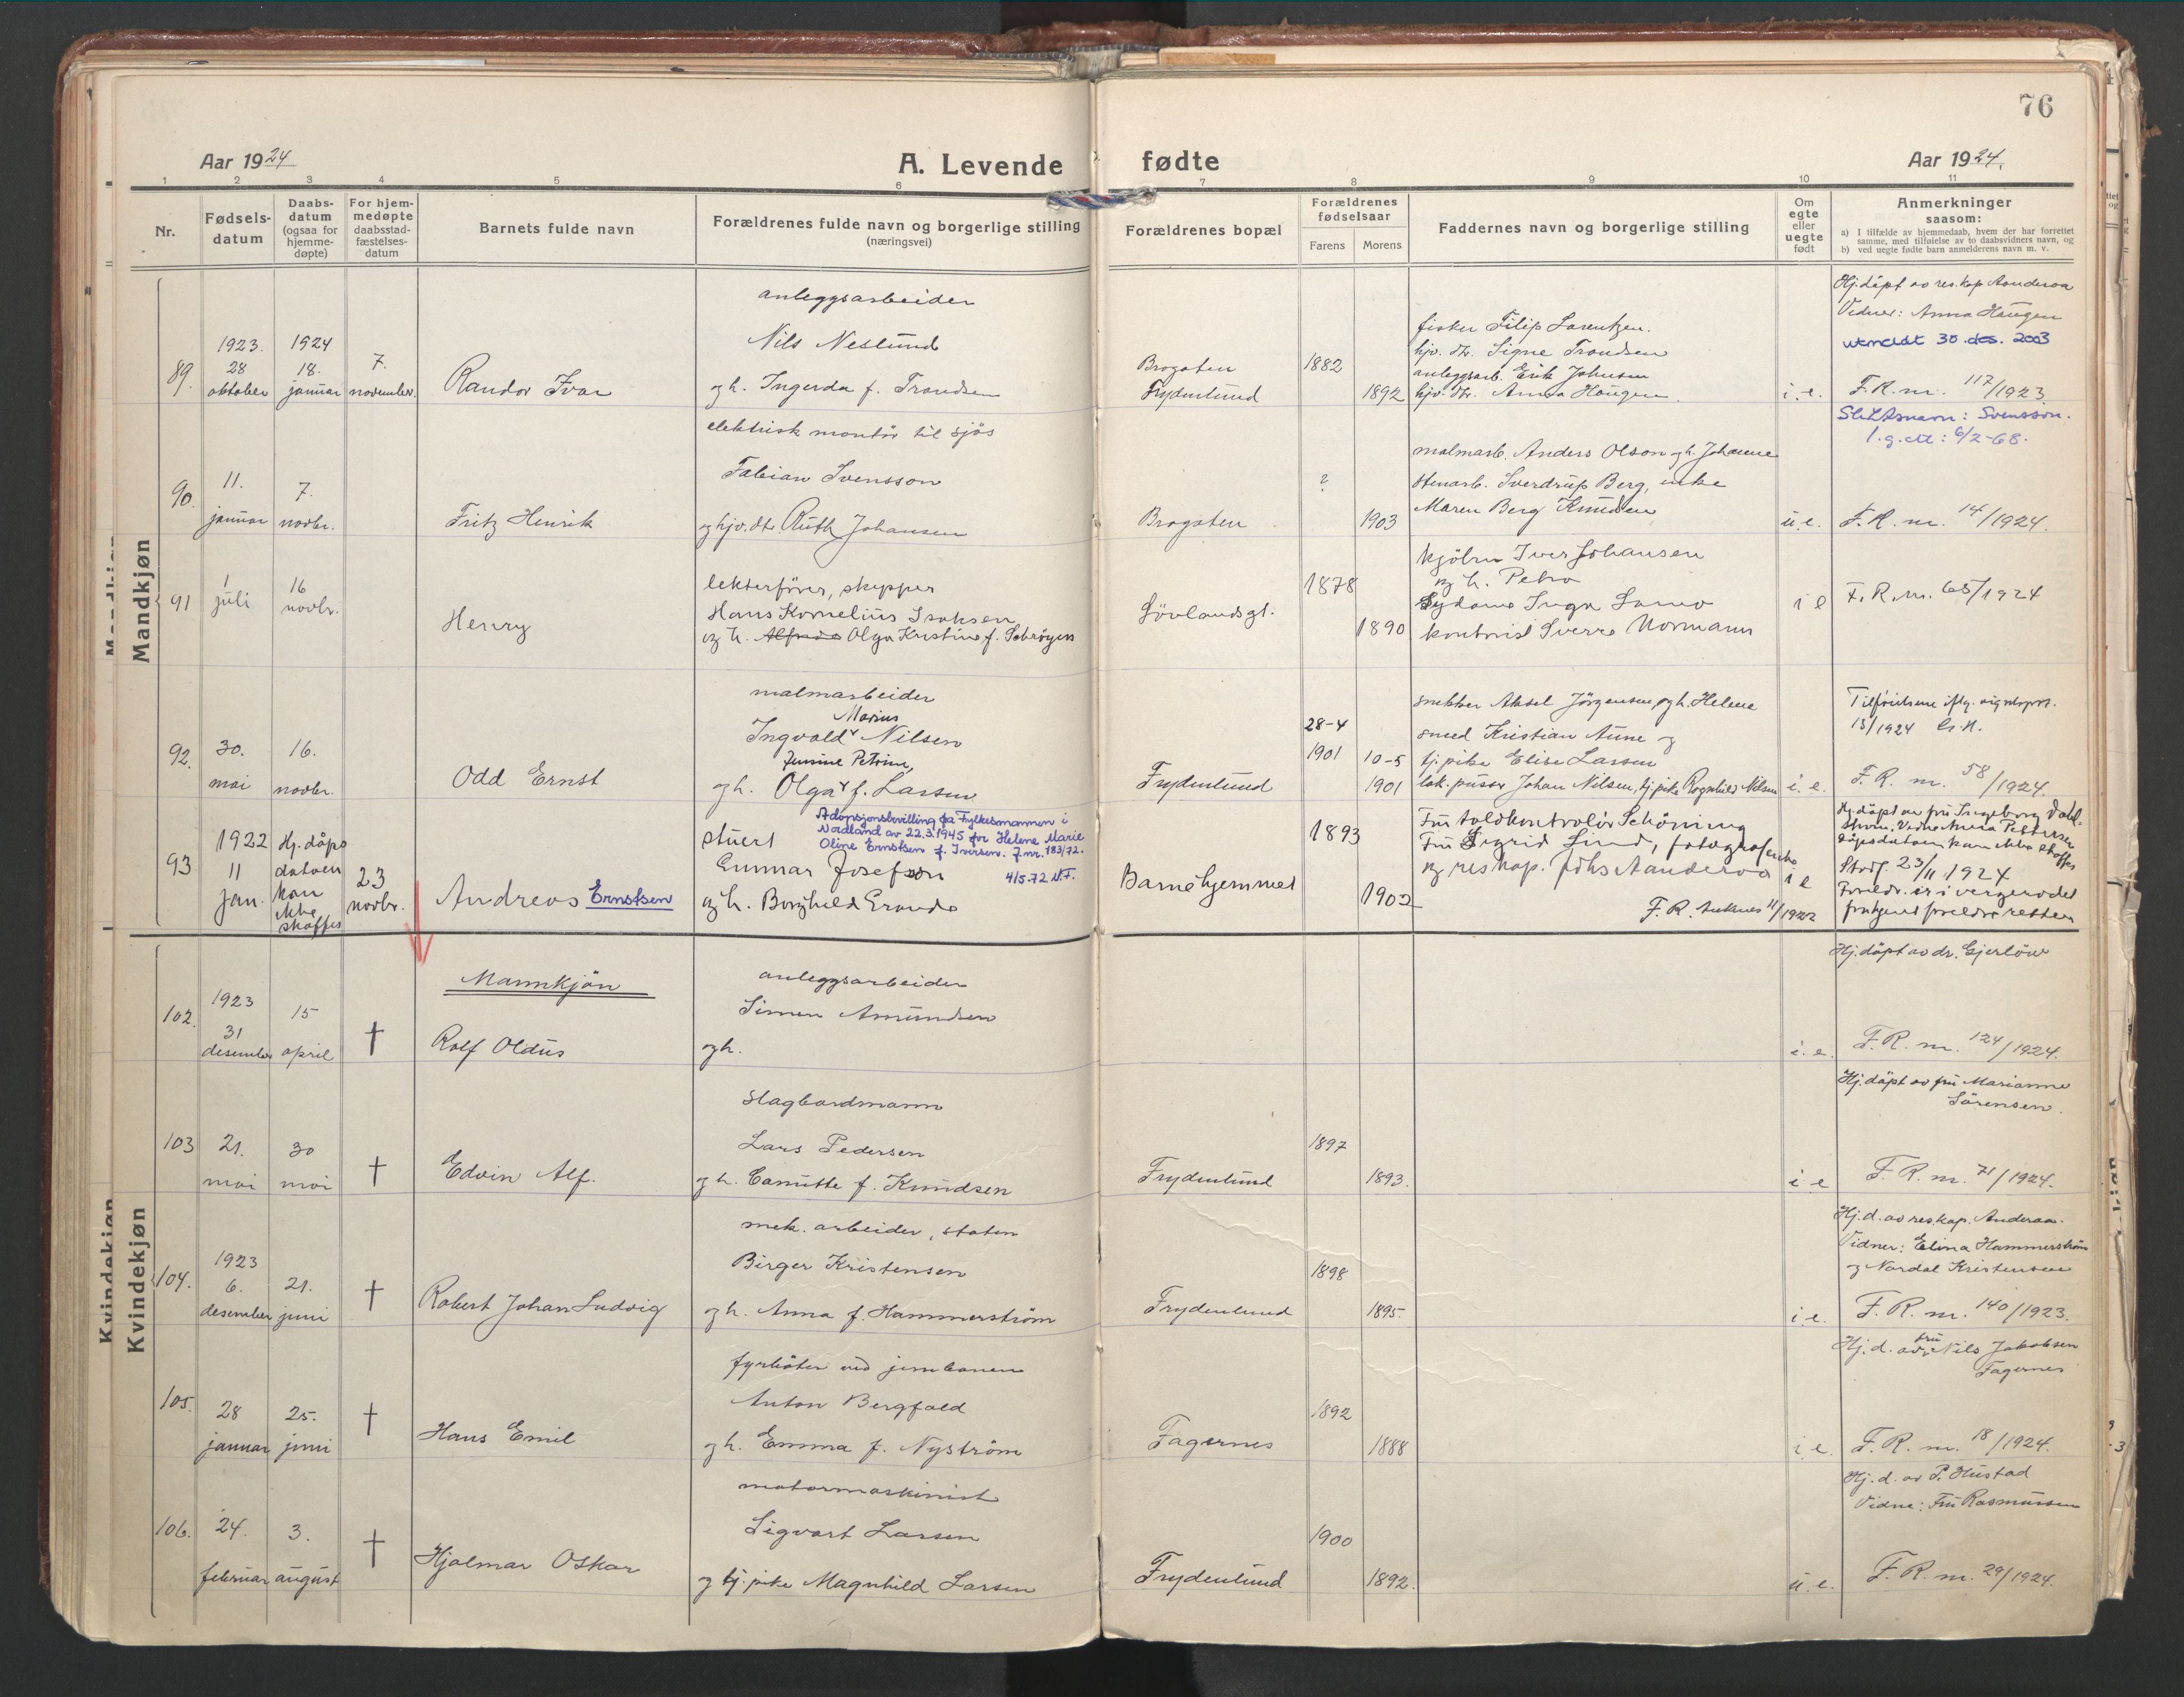 76
Aar 1924
A. Levende fødte
Aar 1924.
1 2 3 4 5 6 7 8 9 10 11
Nr.
Fødsels-
datum
Daabs-
datum
(ogsaa for
hjemme-
døpte)
For hjem-
medøpte
daabsstad-
fæstelses-
datum
Barnets fulde navn
Forældrenes fulde navn og borgerlige stilling
(næringsvei)
Forældrenes bopæl
Forældrenes
fødselsaar
Farens
Morens
Faddernes navn og borgerlige stilling
Om
egte
eller
uegte
født
Anmerkninger
saasom:
a) I tilfælde av hjemmedaab, hvem der har forrettet
samme, med tilføielse av to daabsvidners navn, og
b) ved uegte fødte barn anmelderens navn m. v.
Mandkjøn
89.
1923.
28
oktober
1924
18.
januar
7.
november.
Randor Ivar
anleggsarbeider
Nils Neslund
og h. Ingerda f. Trondsen
Brogaten
Frydenlund
1882
1892
fisker Filip Lorentzen.
hjv. dtr. Signe Trondsen
anleggsarb. Erik Johnsen
hjv. dtr. Anna Haugen.
i. e.
Hj.døpt av res.kap Aanderaa
Vidner: Anna Haugen
utmeldt 30. des. 2003
F. R. nr. 117/1923
90.
11.
januar
7.
novbr.
Fritz Henrik
elektrisk montør til sjøs
Fabian Svensson
og hjv. dtr. Ruth Johansen
Brogaten
?
1903
malmarb. Anders Olson og h. Johanne
stenarb. Sverdrup Berg, enke
Maren Berg Knudsen
u. e.
Slektsnavn: Svensson.
l.g.att: 6/2-68.
F. R. nr. 14/1924.
91
1
juli
16
novbr.
Henry
lekterfører, skipper
Hans Kornelius Isaksen
og h. Alfrida Olga Kristine f. Schrøgen
Løvlandsgt.
1878
1890
kjølm Iver Johansen
og h. Petra
Sydame Inga Lamo
kontorist Sverre Normann
i e
F. R. nr. 65/1924
92.
30.
mai
16.
novbr.
Odd Ernst
malmarbeider
Marius
Ingvald Nilsen
Jensine Petrine,
og h. Olga f. Larsen
Frydenlund
28-4
1901
10-5
1901
snekker Aksel Jørgensen, og h. Helene
smed Kristian Aune og
tj. pike Elise Larsen
lok. pusser Johan Nilsen, tj. pike Ragnhild Nilsen
i. e.
Tilføielsene iflg. vigselsprot.
13/1924 G.H.
F. R. nr. 58/1924.
93
1922
11
jan.
Hj. døps
datoen
kan
ikke
skaffes
23
novbr.
Andreas Ernstsen
Adopsjonsbevilling fra Fylkesmannen i
Nordland av 22.3.1945 for Helene Marie
Oline Ernstsen f. Iversen. J.nr. 183/72.
4/5.72 N.F.
stuert
Gunnar Josefson
og h. Borghild Grande
Barnehjemmet
1893
1902
Fru toldkontrolør Schöning
Fru Sigrid Lind, fotograf
og res kap. Johs Aanderaa
F. R. Ankenes 11/1922
i e
Hj.døpt av fru Ingeborg Dahl-
strøm. Vidne Anna Pettersen
døpsdatoen kan ikke skaffes
Stadf. 23/11 1924
Foreldr. er i vergerådet
frakjent foreldreretten
Kvindekjøn
Mannkjøn
102.
1923
31
desember
15
april
†
Rolf Oldus
anleggsarbeider
Simen Amundsen
og h.
i. e.
Hj.døpt av dr. Gjerløw
F. R. nr. 124/1924.
103
21.
mai
30
mai
†
Edvin Alf.
slagbordmann
Lars Pedersen
og h. Camitte f. Knudsen
Frydenlund
1897
1893.
i e
Hj.døpt av fru Marianne
Sørensen.
F. R. nr. 71/1924.
104.
1923
6.
desember
21.
juni
†
Robert Johan Ludvig
mek. arbeider, staten
Birger Kristensen
og h. Anna f. Hammerström
Frydenlund
1898
1895.
i. e.
Hj. d. av res.kap. Anderaa.
Vidner: Elina Hammerström
og Nordal Kristensen
F. R. nr. 140/1923.
105.
28
januar
25.
juni
†
Hans Emil
fyrbøter ved jernbanen
Anton Bergfald
og h. Emma f. Nyström
Fagernes
1892
1888
i e.
fru
Hj. d. av Nils Jakobsen
Fagernes
F. R. nr. 18/1924.
106.
24.
februar
3.
august
†
Hjalmar Oskar
motormaskinist
Sigvart Larsen
og tj. pike Magnhild Larsen
Frydenlund
1900
1892.
u. e.
Hj. d. av P. Hustad
Vidne: Fru Rasmussen
F. R. nr. 29/1924.